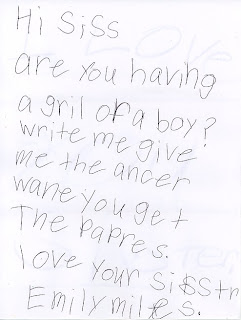 Hi Siss
are you having
a gril or a boy?
write me give
me the ancer
wane you get
The papres.
love your sisstr
Emily miles.